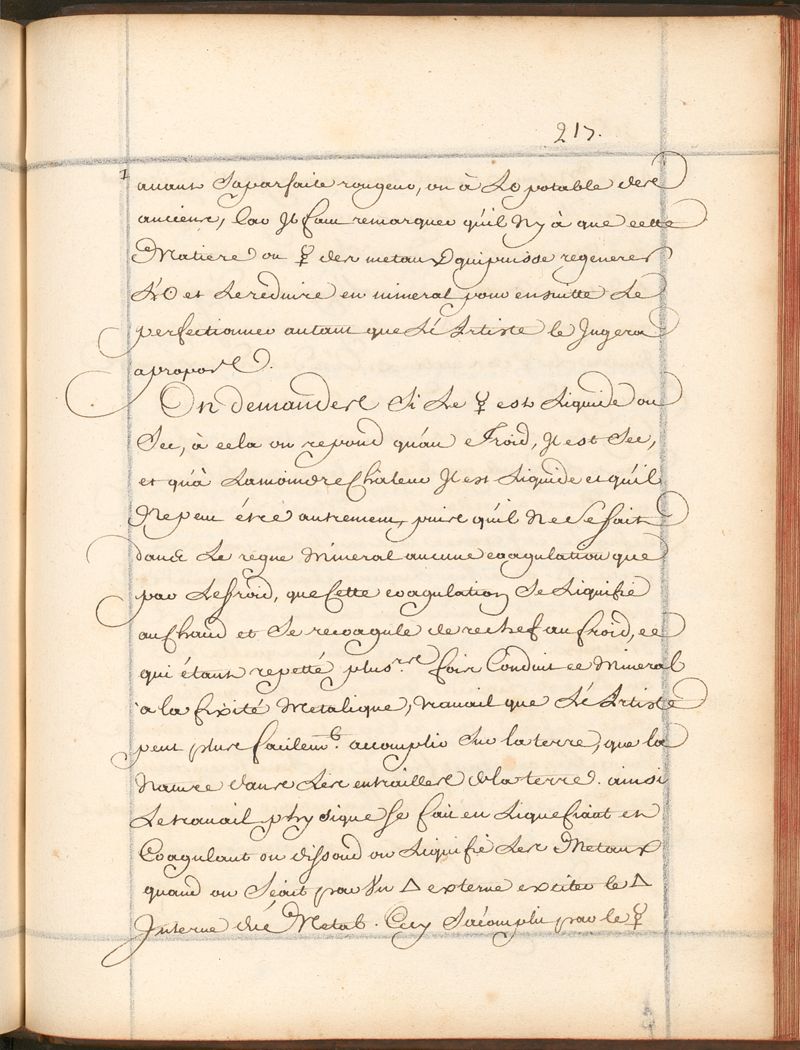 217.
1
avant Saparfaite rougeur, ou à L'☉ potable des
anciens, Car Jl faut remarquer qu'il Ny à que cette
Matiere ou ☿ des metaux qui puisse regenerer
L'☉ et Le reduire en mineral pour ensuitte Le
perfectionner autant que L'Artiste le Jugera
apropos.
On demande Si Le ☿ est Liquide ou
Sec, à cela on repond qu'au Froid, Jl est Sec,
et qu'à Lamoindre Chaleur Jl est Liquide et qu'il
Nepeut étre autrement, puis qu'il Ne Se fait
dans Le regne Mineral aucune coagulation que
par Le froid, que Cette coagulation Se Liquifie
au Chaud et Se recoagule de rechef au froid, ce
qui étant repetté plus.rs fois Conduit ce Mineral
à la fixité Metalique, travail que L'Artiste
peut plus facilem.t accomplir Sur la terre, que la
Nature dans Les entrailles de la terre. ainsi
Le travail physique Se fait en Liquefiant et
Coagulant on dissoud ou Liquifie Les Metaux
quand on Sçait par Un △ externe exciter le △
Interne du Metal. Cecy S'accomplit par le ☿